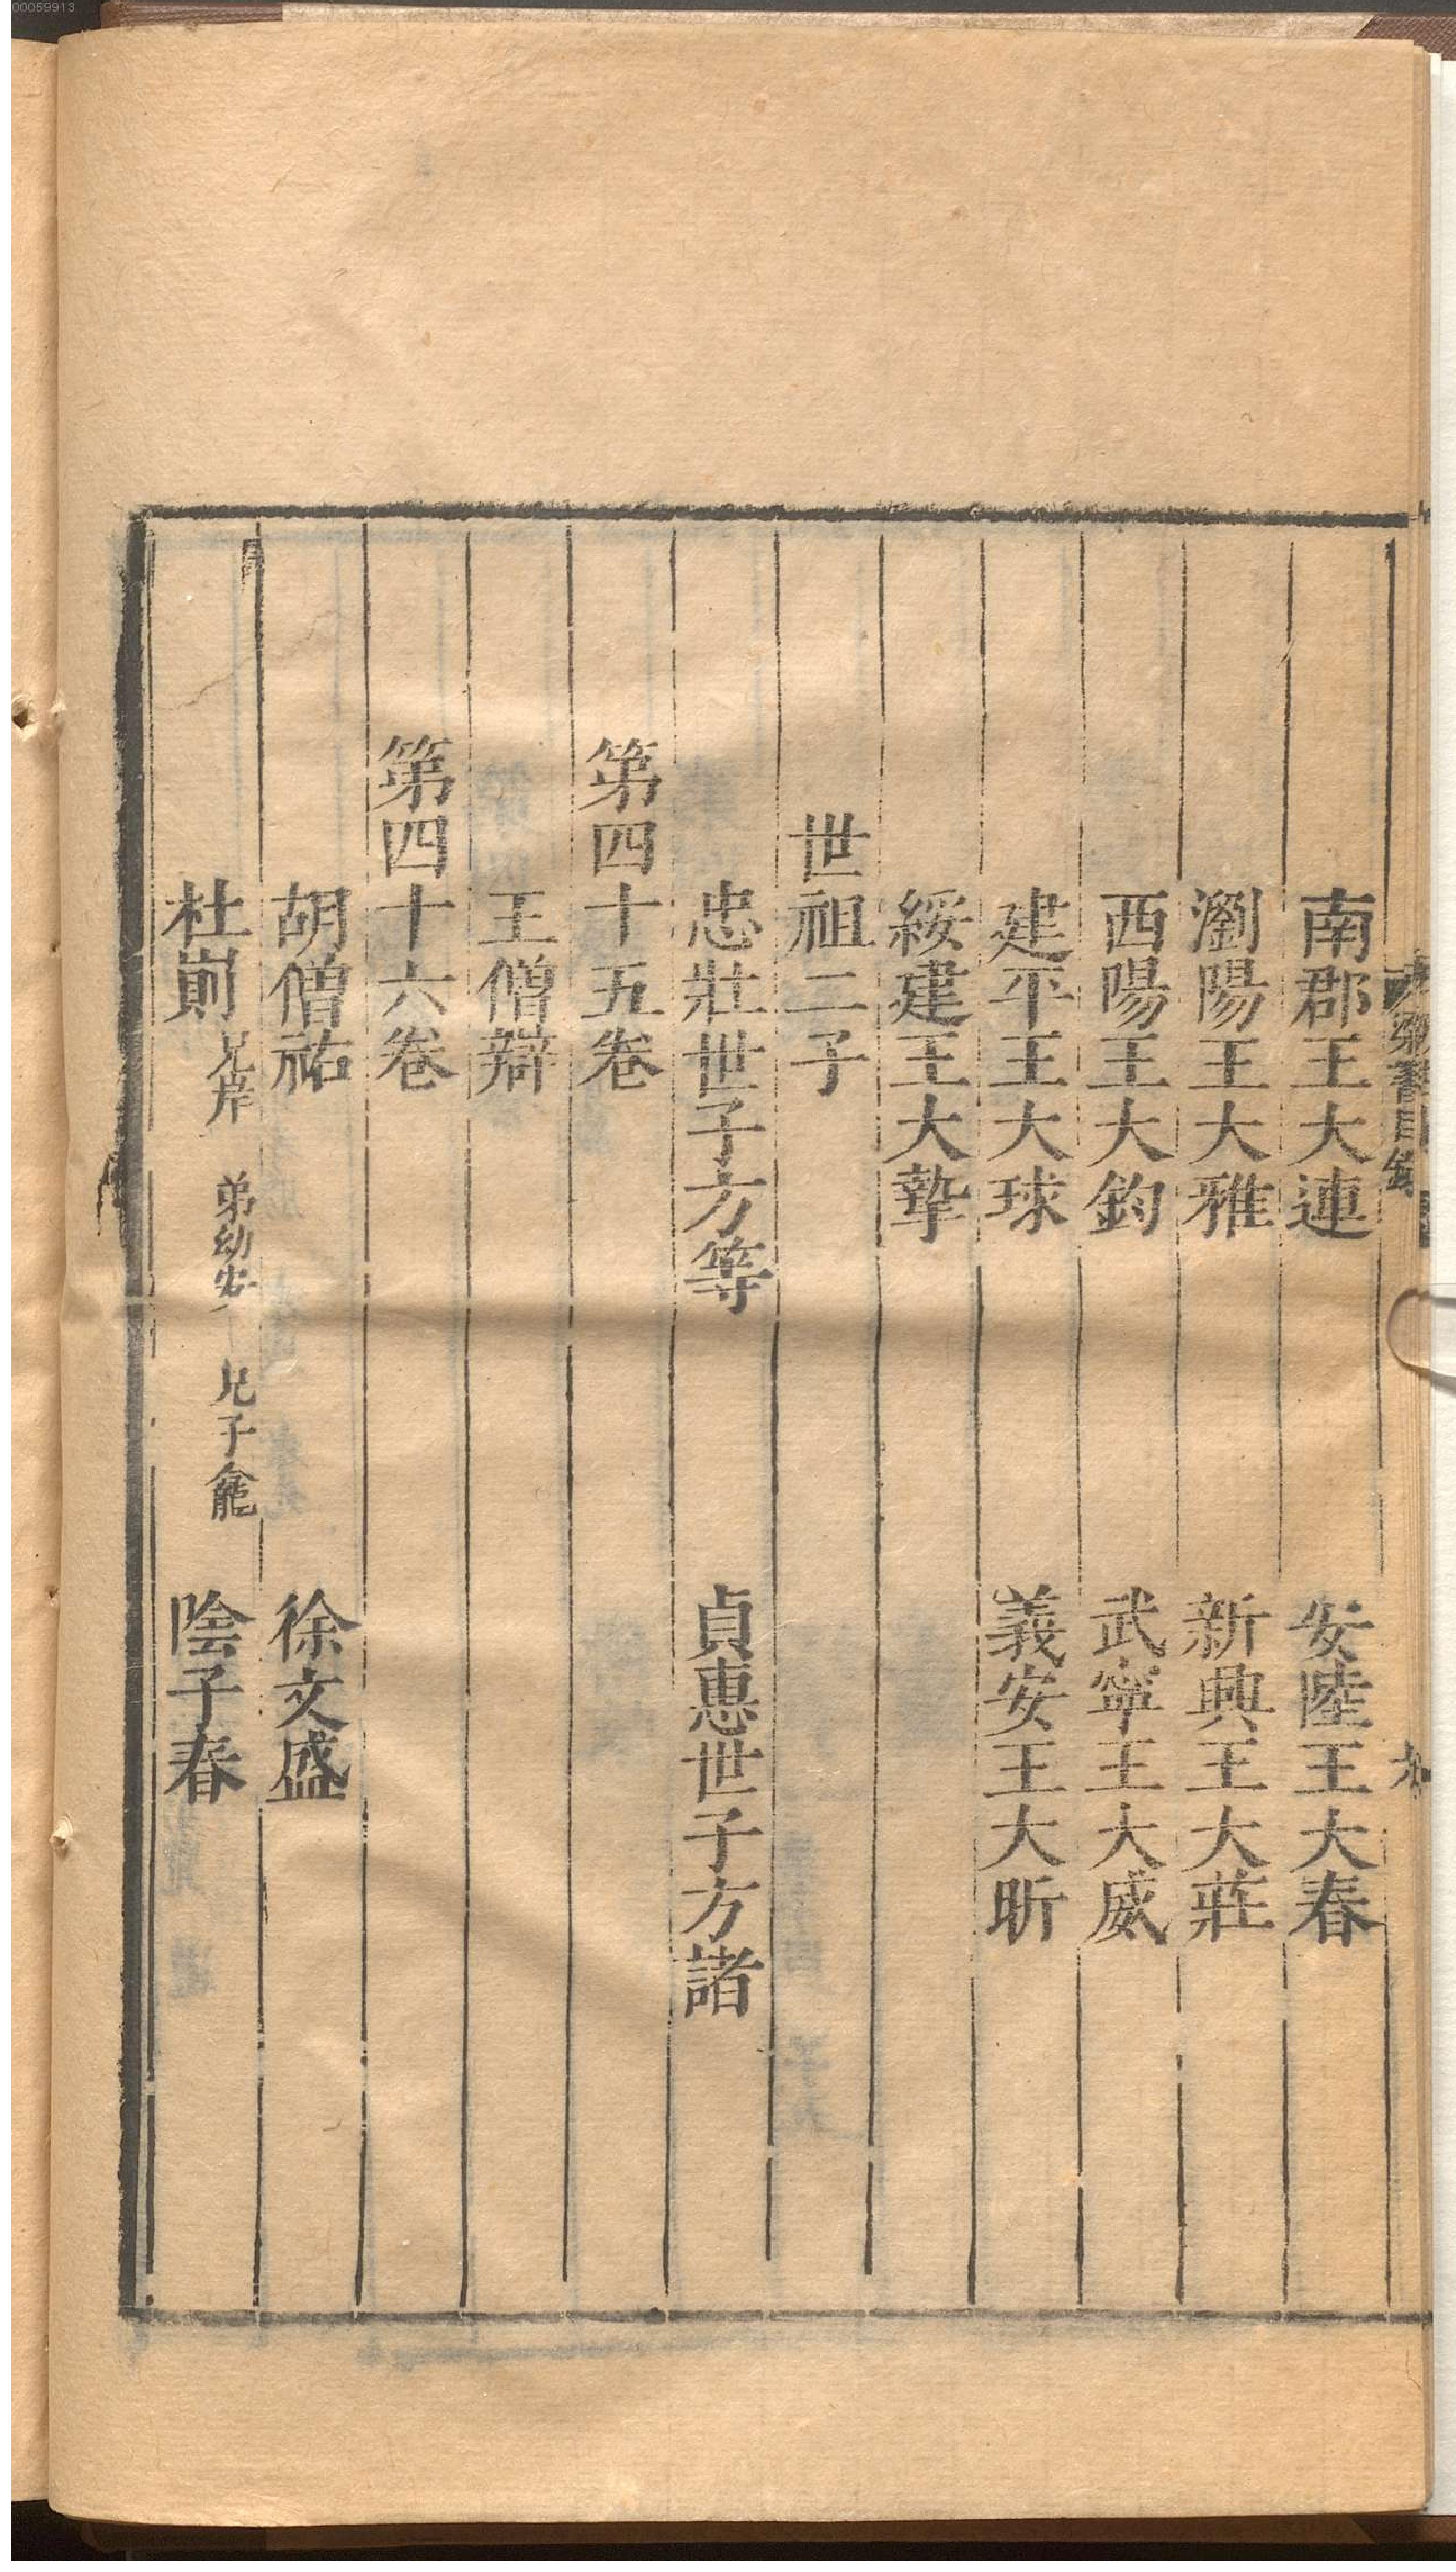 00059913
梁書目錄
九
南郡王大連　安陸王大春
瀏陽王大雅　新興王大莊
西陽王大鈞　武寧王大威
建平王大球　義安王大昕
綏建王大摯
世祖二子
忠壯世子方等　貞惠世子方諸
第四十五卷
王僧辯
第四十六卷
胡僧祐　徐文盛
杜崱　兄岸　弟幼安　兄子龕　陰子春